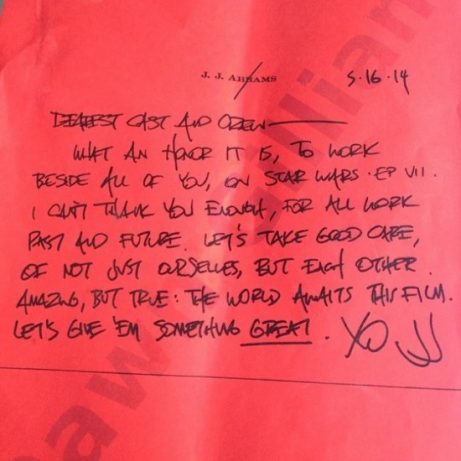 J. J. ABRAMS
5·16·14
DEAREST CAST AND CREW—
WHAT AN HONOR IT IS, TO WORK
BESIDE ALL OF YOU, ON STAR WARS · EP VII.
I CAN'T THANK YOU ENOUGH, FOR ALL WORK
PAST AND FUTURE. LET'S TAKE GOOD CARE,
OF NOT JUST OURSELVES, BUT EACH OTHER.
AMAZING, BUT TRUE: THE WORLD AWAITS THIS FILM.
LET'S GIVE 'EM SOMETHING GREAT. XO JJ